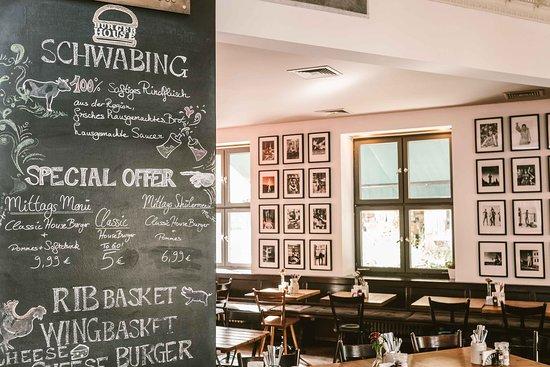 BURGER
HOUSE
SCHWABING
100% Saftiges Rindfleisch
aus der Region,
frisches Hausgemachtes Brot,
hausgemachte Saucen
SPECIAL OFFER
Mittags Menü
Classic House Burger
Pommes + Softdrink
9,99 €
Classic
House Burger
To Go!
5 €
Mittags Schülermenü
Classic House Burger
Pommes
6,99 €
RIB BASKET
WING BASKET
CHEESE
CHEESE BURGER